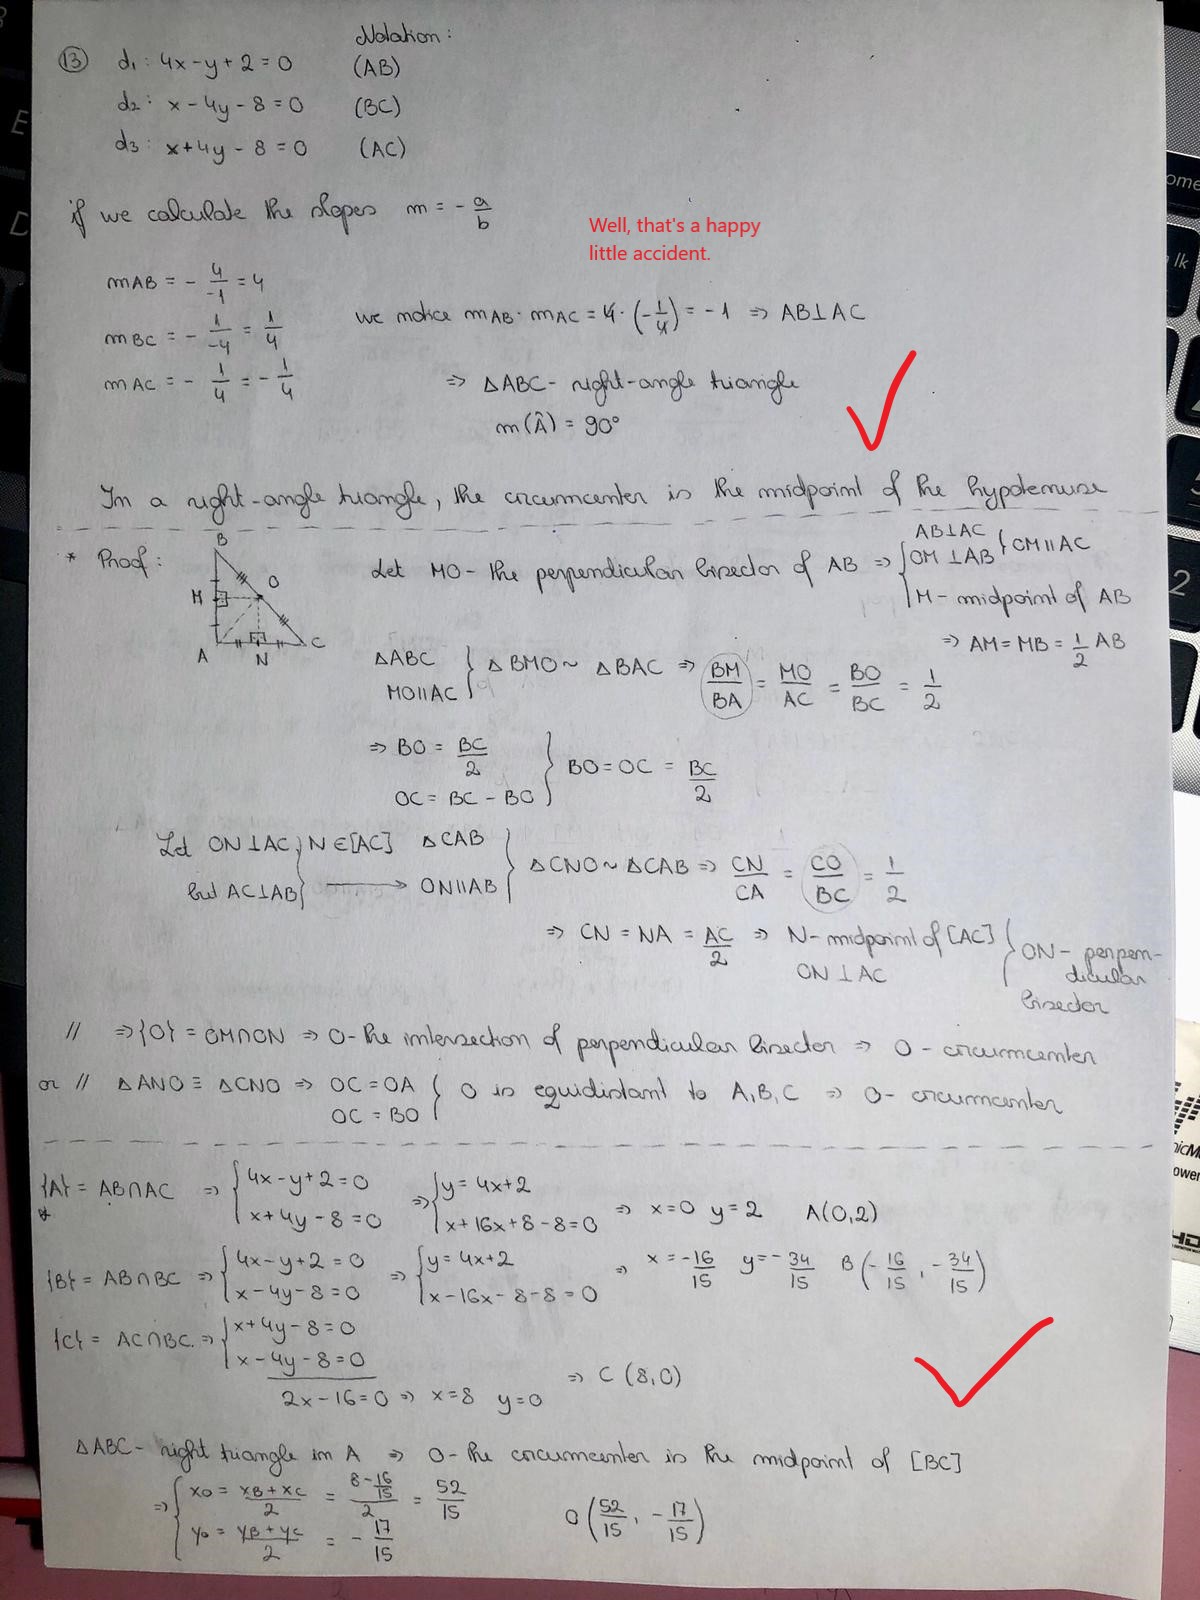 Notation:
(13) d₁: 4x-y+2=0 (AB)
d₂: x-4y-8=0 (BC)
d₃: x+4y-8=0 (AC)
if we calculate the slopes m = -a/b
Well, that's a happy
little accident.
mAB = - 4/-1 = 4
we notice mAB · mAC = 4·(-1/4) = -1 => AB⊥AC
mBC = - 1/-4 = 1/4
mAC = - 1/4 = - 1/4
=> ΔABC - right-angle triangle
m(Â) = 90°
In a right-angle triangle, the circumcenter is the midpoint of the hypotenuse
* Proof:
B
O
M
A N C
Let MO - the perpendicular bisector of AB => { AB⊥AC
OM⊥AB } OM∥AC
M - midpoint of AB
=> AM = MB = 1/2 AB
ΔABC
MO∥AC } ΔBMO ~ ΔBAC => BM/BA = MO/AC = BO/BC = 1/2
=> BO = BC/2
OC = BC - BO } BO = OC = BC/2
Let ON⊥AC, N∈[AC] ΔCAB
but AC⊥AB → ON∥AB } ΔCNO ~ ΔCAB => CN/CA = CO/BC = 1/2
=> CN = NA = AC/2 => N - midpoint of [AC]
ON⊥AC } ON - perpen-
dicular
bisector
// => {O} = OM∩ON => O - the intersection of perpendicular bisector => O - circumcenter
or // ΔANO ≡ ΔCNO => OC = OA
OC = BO } O is equidistant to A, B, C => O - circumcenter
{A} = AB∩AC => { 4x-y+2=0
x+4y-8=0 => { y=4x+2
x+16x+8-8=0 => x=0 y=2 A(0,2)
{B} = AB∩BC => { 4x-y+2=0
x-4y-8=0 => { y=4x+2
x-16x-8-8=0 => x = -16/15 y = -34/15 B(-16/15, -34/15)
{C} = AC∩BC => { x+4y-8=0
x-4y-8=0
2x-16=0 => x=8 y=0 => C (8,0)
ΔABC - right triangle in A => O - the circumcenter is the midpoint of [BC]
=> { xO = (xB+xC)/2 = (8-16/15)/2 = 52/15
yO = (yB+yC)/2 = -17/15
O(52/15, -17/15)